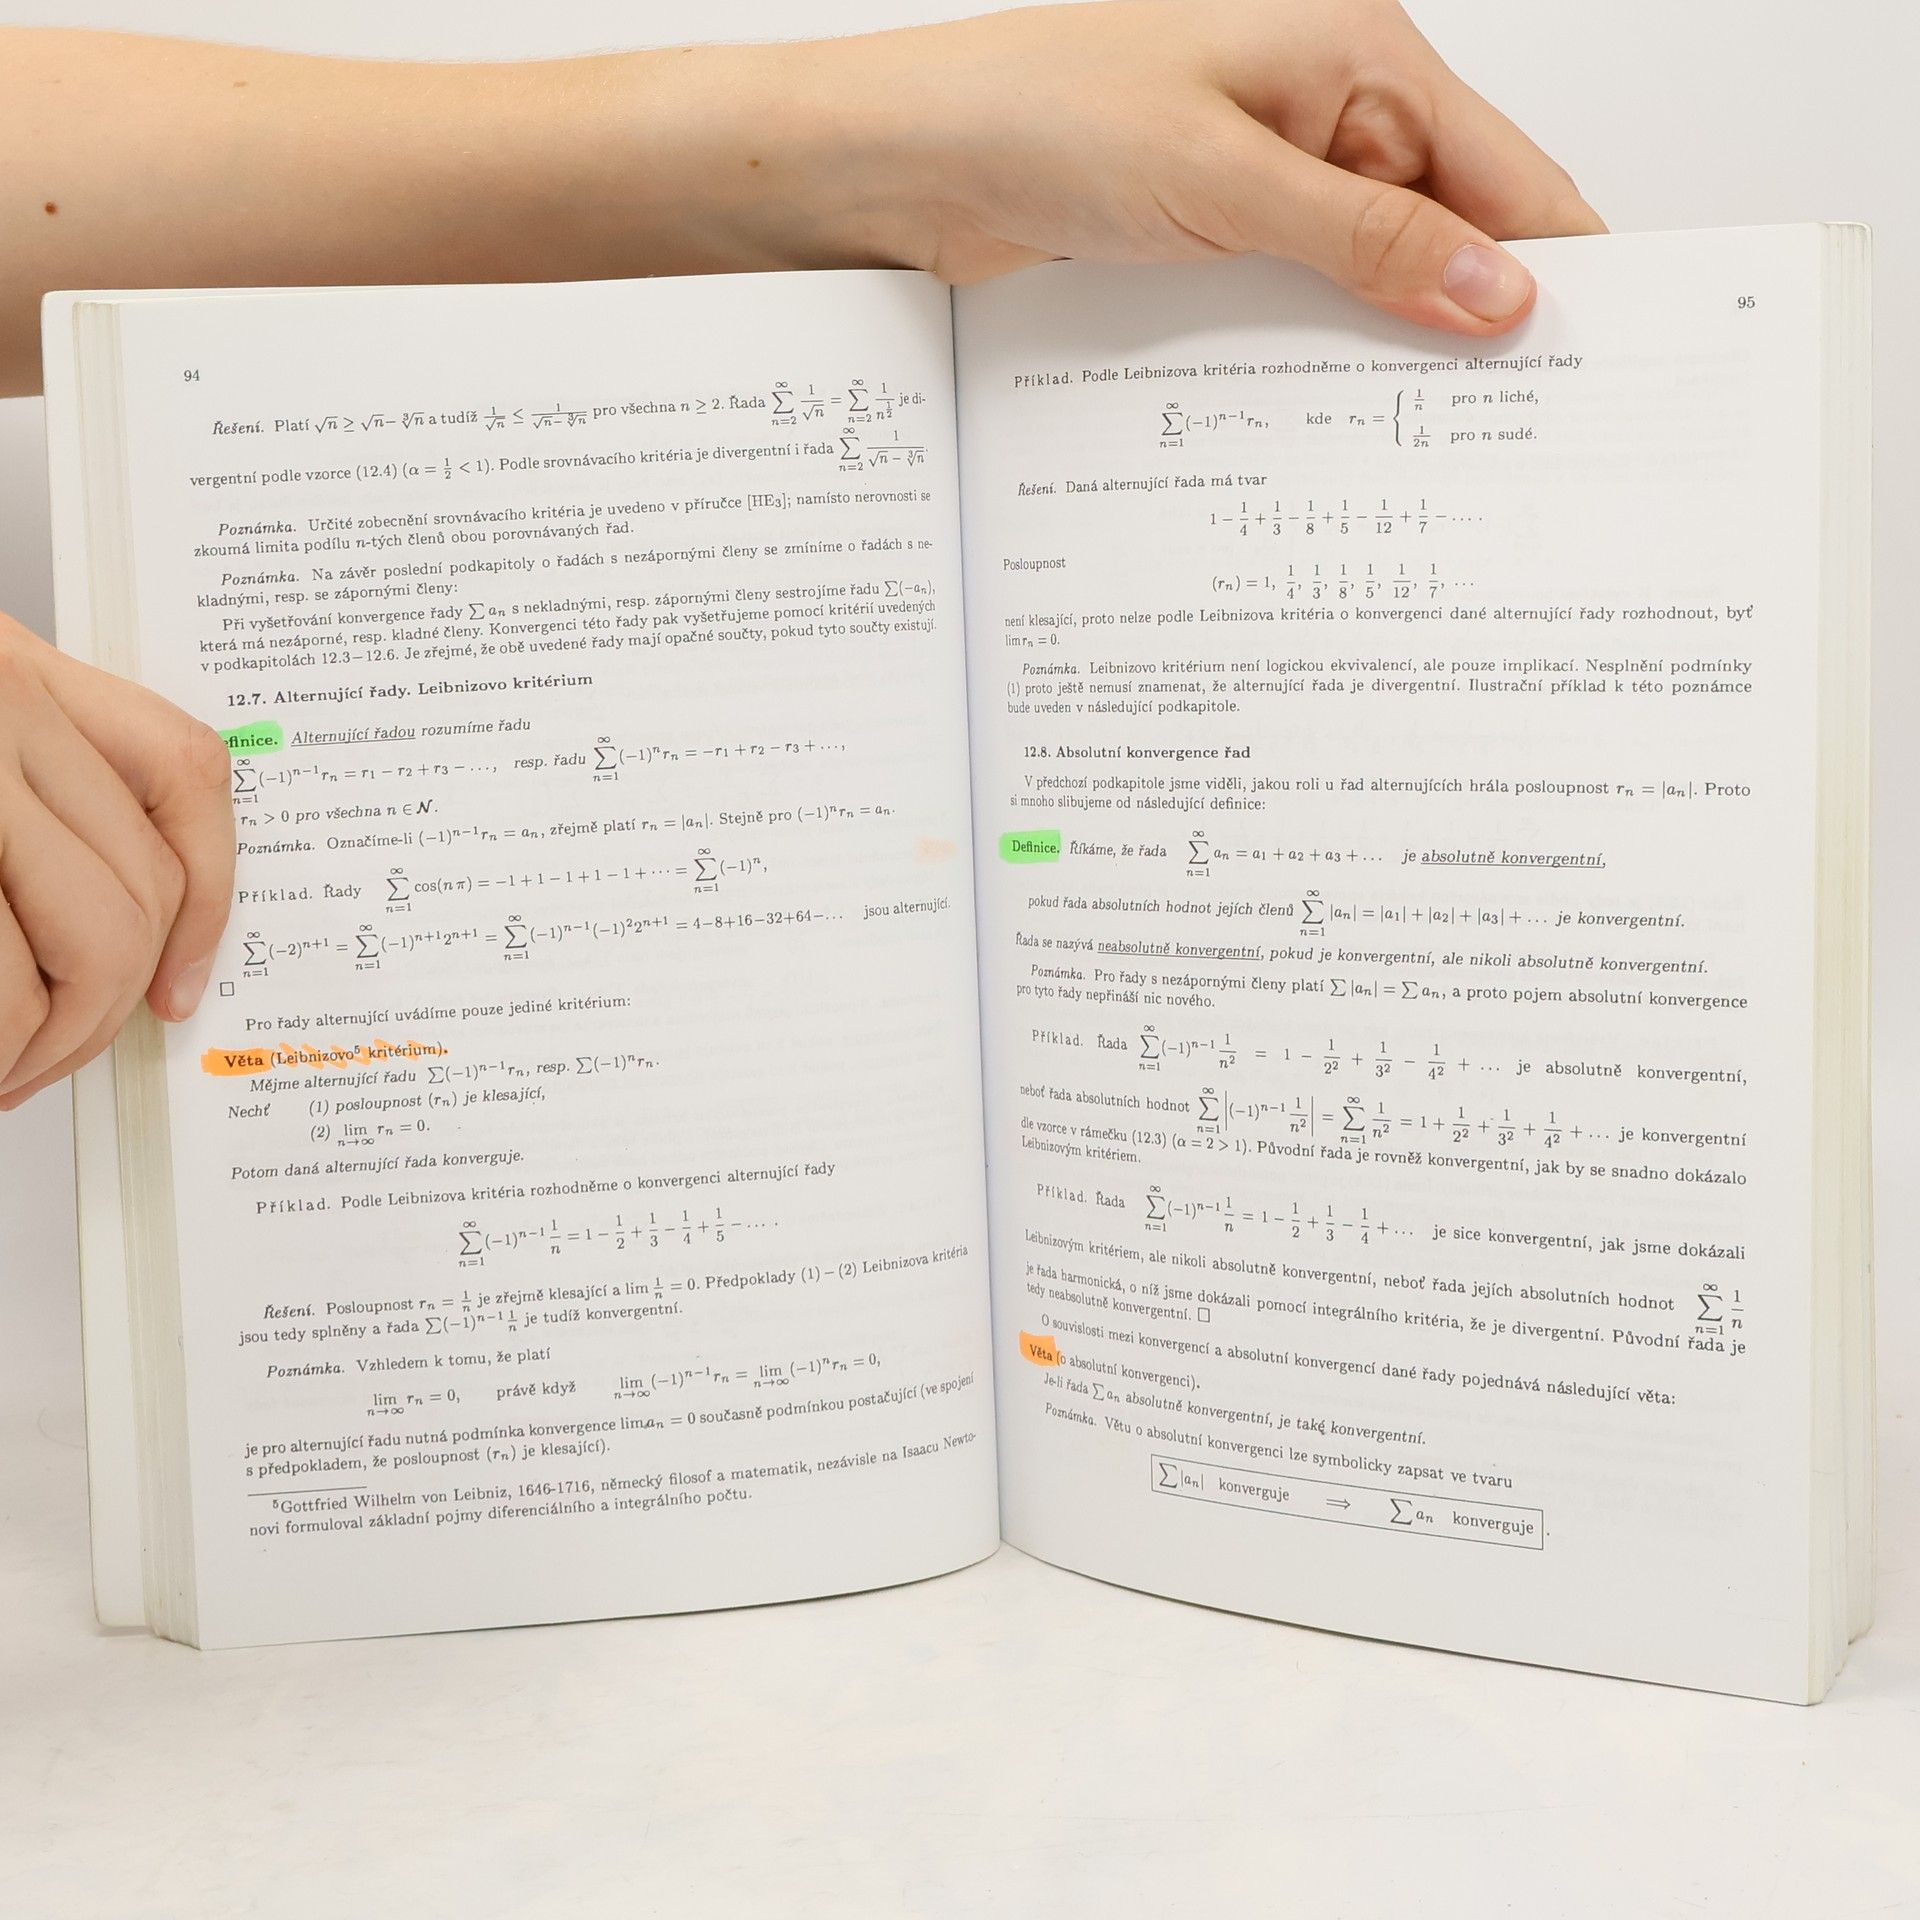 94
Řešení. Platí √n ≥ √n − ∛n a tudíž 1/√n ≤ 1/(√n − ∛n) pro všechna n ≥ 2. Řada ∑_{n=2}^∞ 1/√n = ∑_{n=2}^∞ 1/n^{1/2} je di-
vergentní podle vzorce (12.4) (α = 1/2 < 1). Podle srovnávacího kritéria je divergentní i řada ∑_{n=2}^∞ 1/(√n − ∛n).
Poznámka. Určité zobecnění srovnávacího kritéria je uvedeno v příručce [HE3]; namísto nerovnosti se
zkoumá limita podílu n-tých členů obou porovnávaných řad.
Poznámka. Na závěr poslední podkapitoly o řadách s nezápornými členy se zmíníme o řadách s ne-
kladnými, resp. se zápornými členy:
Při vyšetřování konvergence řady ∑ aₙ s nekladnými, resp. zápornými členy sestrojíme řadu ∑(−aₙ),
která má nezáporné, resp. kladné členy. Konvergenci této řady pak vyšetřujeme pomocí kritérií uvedených
v podkapitolách 12.3–12.6. Je zřejmé, že obě uvedené řady mají opačné součty, pokud tyto součty existují.
12.7. Alternující řady. Leibnizovo kritérium
efinice. Alternující řadou rozumíme řadu
∑_{n=1}^∞ (−1)^{n−1} rₙ = r₁ − r₂ + r₃ − ..., resp. řadu ∑_{n=1}^∞ (−1)^n rₙ = −r₁ + r₂ − r₃ + ...,
rₙ > 0 pro všechna n ∈ N.
Poznámka. Označíme-li (−1)^{n−1} rₙ = aₙ, zřejmě platí rₙ = |aₙ|. Stejně pro (−1)^n rₙ = aₙ.
Příklad. Řady ∑_{n=1}^∞ cos(n π) = −1 + 1 − 1 + 1 − 1 + ··· = ∑_{n=1}^∞ (−1)^n,
∑_{n=1}^∞ (−2)^{n+1} = ∑_{n=1}^∞ (−1)^{n+1} 2^{n+1} = ∑_{n=1}^∞ (−1)^{n−1} (−1)² 2^{n+1} = 4−8+16−32+64−... jsou alternující.
□
Pro řady alternující uvádíme pouze jediné kritérium:
Věta (Leibnizovo⁵ kritérium).
Mějme alternující řadu ∑(−1)^{n−1} rₙ, resp. ∑(−1)^n rₙ.
Nechť (1) posloupnost (rₙ) je klesající,
(2) lim_{n→∞} rₙ = 0.
Potom daná alternující řada konverguje.
Příklad. Podle Leibnizova kritéria rozhodněme o konvergenci alternující řady
∑_{n=1}^∞ (−1)^{n−1} 1/n = 1 − 1/2 + 1/3 − 1/4 + 1/5 − ... .
Řešení. Posloupnost rₙ = 1/n je zřejmě klesající a lim 1/n = 0. Předpoklady (1) – (2) Leibnizova kritéria
jsou tedy splněny a řada ∑(−1)^{n−1} 1/n je tudíž konvergentní.
Poznámka. Vzhledem k tomu, že platí
lim_{n→∞} rₙ = 0, právě když lim_{n→∞} (−1)^{n−1} rₙ = lim_{n→∞} (−1)^n rₙ = 0,
je pro alternující řadu nutná podmínka konvergence lim aₙ = 0 současně podmínkou postačující (ve spojení
s předpokladem, že posloupnost (rₙ) je klesající).
⁵Gottfried Wilhelm von Leibniz, 1646-1716, německý filosof a matematik, nezávisle na Isaacu Newto-
novi formuloval základní pojmy diferenciálního a integrálního počtu.
95
Příklad. Podle Leibnizova kritéria rozhodněme o konvergenci alternující řady
∑_{n=1}^∞ (−1)^{n−1} rₙ, kde rₙ = { 1/n pro n liché,
1/2n pro n sudé.
Řešení. Daná alternující řada má tvar
1 − 1/4 + 1/3 − 1/8 + 1/5 − 1/12 + 1/7 − ... .
Posloupnost
(rₙ) = 1, 1/4, 1/3, 1/8, 1/5, 1/12, 1/7, ...
není klesající, proto nelze podle Leibnizova kritéria o konvergenci dané alternující řady rozhodnout, byť
lim rₙ = 0.
Poznámka. Leibnizovo kritérium není logickou ekvivalencí, ale pouze implikací. Nesplnění podmínky
(1) proto ještě nemusí znamenat, že alternující řada je divergentní. Ilustrační příklad k této poznámce
bude uveden v následující podkapitole.
12.8. Absolutní konvergence řad
V předchozí podkapitole jsme viděli, jakou roli u řad alternujících hrála posloupnost rₙ = |aₙ|. Proto
si mnoho slibujeme od následující definice:
Definice. Říkáme, že řada ∑_{n=1}^∞ aₙ = a₁ + a₂ + a₃ + ... je absolutně konvergentní,
pokud řada absolutních hodnot jejích členů ∑_{n=1}^∞ |aₙ| = |a₁| + |a₂| + |a₃| + ... je konvergentní.
Řada se nazývá neabsolutně konvergentní, pokud je konvergentní, ale nikoli absolutně konvergentní.
Poznámka. Pro řady s nezápornými členy platí ∑|aₙ| = ∑ aₙ, a proto pojem absolutní konvergence
pro tyto řady nepřináší nic nového.
Příklad. Řada ∑_{n=1}^∞ (−1)^{n−1} 1/n² = 1 − 1/2² + 1/3² − 1/4² + ... je absolutně konvergentní,
neboť řada absolutních hodnot ∑_{n=1}^∞ |(−1)^{n−1} 1/n²| = ∑_{n=1}^∞ 1/n² = 1 + 1/2² + 1/3² + 1/4² + ... je konvergentní
dle vzorce v rámečku (12.3) (α = 2 > 1). Původní řada je rovněž konvergentní, jak by se snadno dokázalo
Leibnizovým kritériem.
Příklad. Řada ∑_{n=1}^∞ (−1)^{n−1} 1/n = 1 − 1/2 + 1/3 − 1/4 + ... je sice konvergentní, jak jsme dokázali
Leibnizovým kritériem, ale nikoli absolutně konvergentní, neboť řada jejích absolutních hodnot ∑_{n=1}^∞ 1/n
je řada harmonická, o níž jsme dokázali pomocí integrálního kritéria, že je divergentní. Původní řada je
tedy neabsolutně konvergentní. □
O souvislosti mezi konvergencí a absolutní konvergencí dané řady pojednává následující věta:
Věta (o absolutní konvergenci).
Je-li řada ∑ aₙ absolutně konvergentní, je také konvergentní.
Poznámka. Větu o absolutní konvergenci lze symbolicky zapsat ve tvaru
∑|aₙ| konverguje ⟹ ∑ aₙ konverguje .